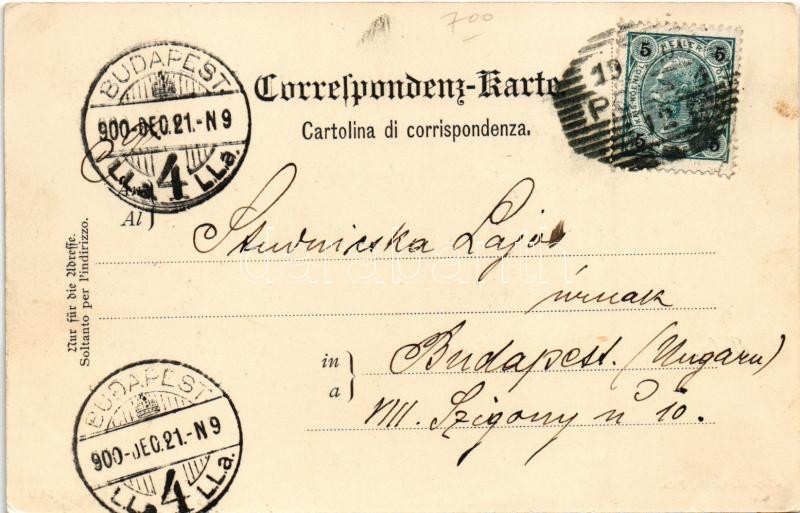 700
BUDAPEST
900-DEC.21.-N9
LLa. 4 LLa.
Correspondenz-Karte
Cartolina di corrispondenza.
5 5
5 5
19
P
An
Al
Studnicska Lajos
úrnak
in
a
Budapest. (Ungarn)
VIII. Szigony u 10.
Nur für die Adresse.
Soltanto per l'indirizzo.
BUDAPEST
900-DEC.21.-N9
LLa 4 LLa.
darabanth